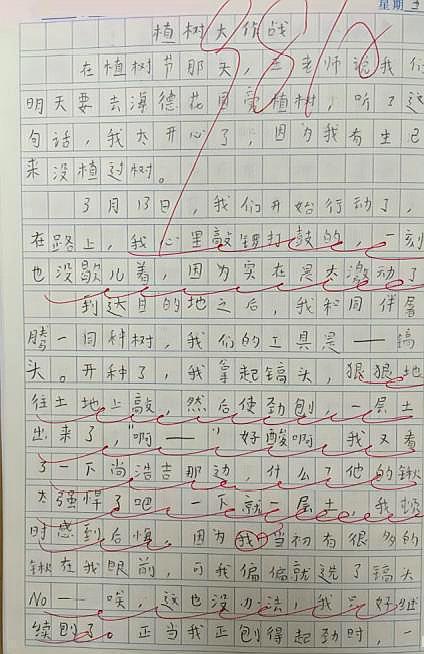 星期
植树大作战
在植树节那天，王老师说我们
明天要去海德花园旁植树，听了这
句话，我太开心了，因为我有生已
来没植过树。
3月13日，我们开始行动了，
在路上，我心里敲锣打鼓的，一刻
也没歇儿着，因为实在是太激动了
到达目的地之后，我和同伴暑
腾一同种树，我们的工具是——镐
头。开种了，我拿起镐头，狠狠地
往土地上敲，然后使劲刨，一层土
出来了，"啊——"好酸啊，我又看
了一下尚浩吉那边，什么？他的锹
太强悍了吧，一下就一层土，我顿
时感到后悔，因为我当初有很多的
锹在我眼前，可我偏偏就选了镐头
No——唉，这也没办法，我只好继
续刨了。正当我正刨得起劲时，一